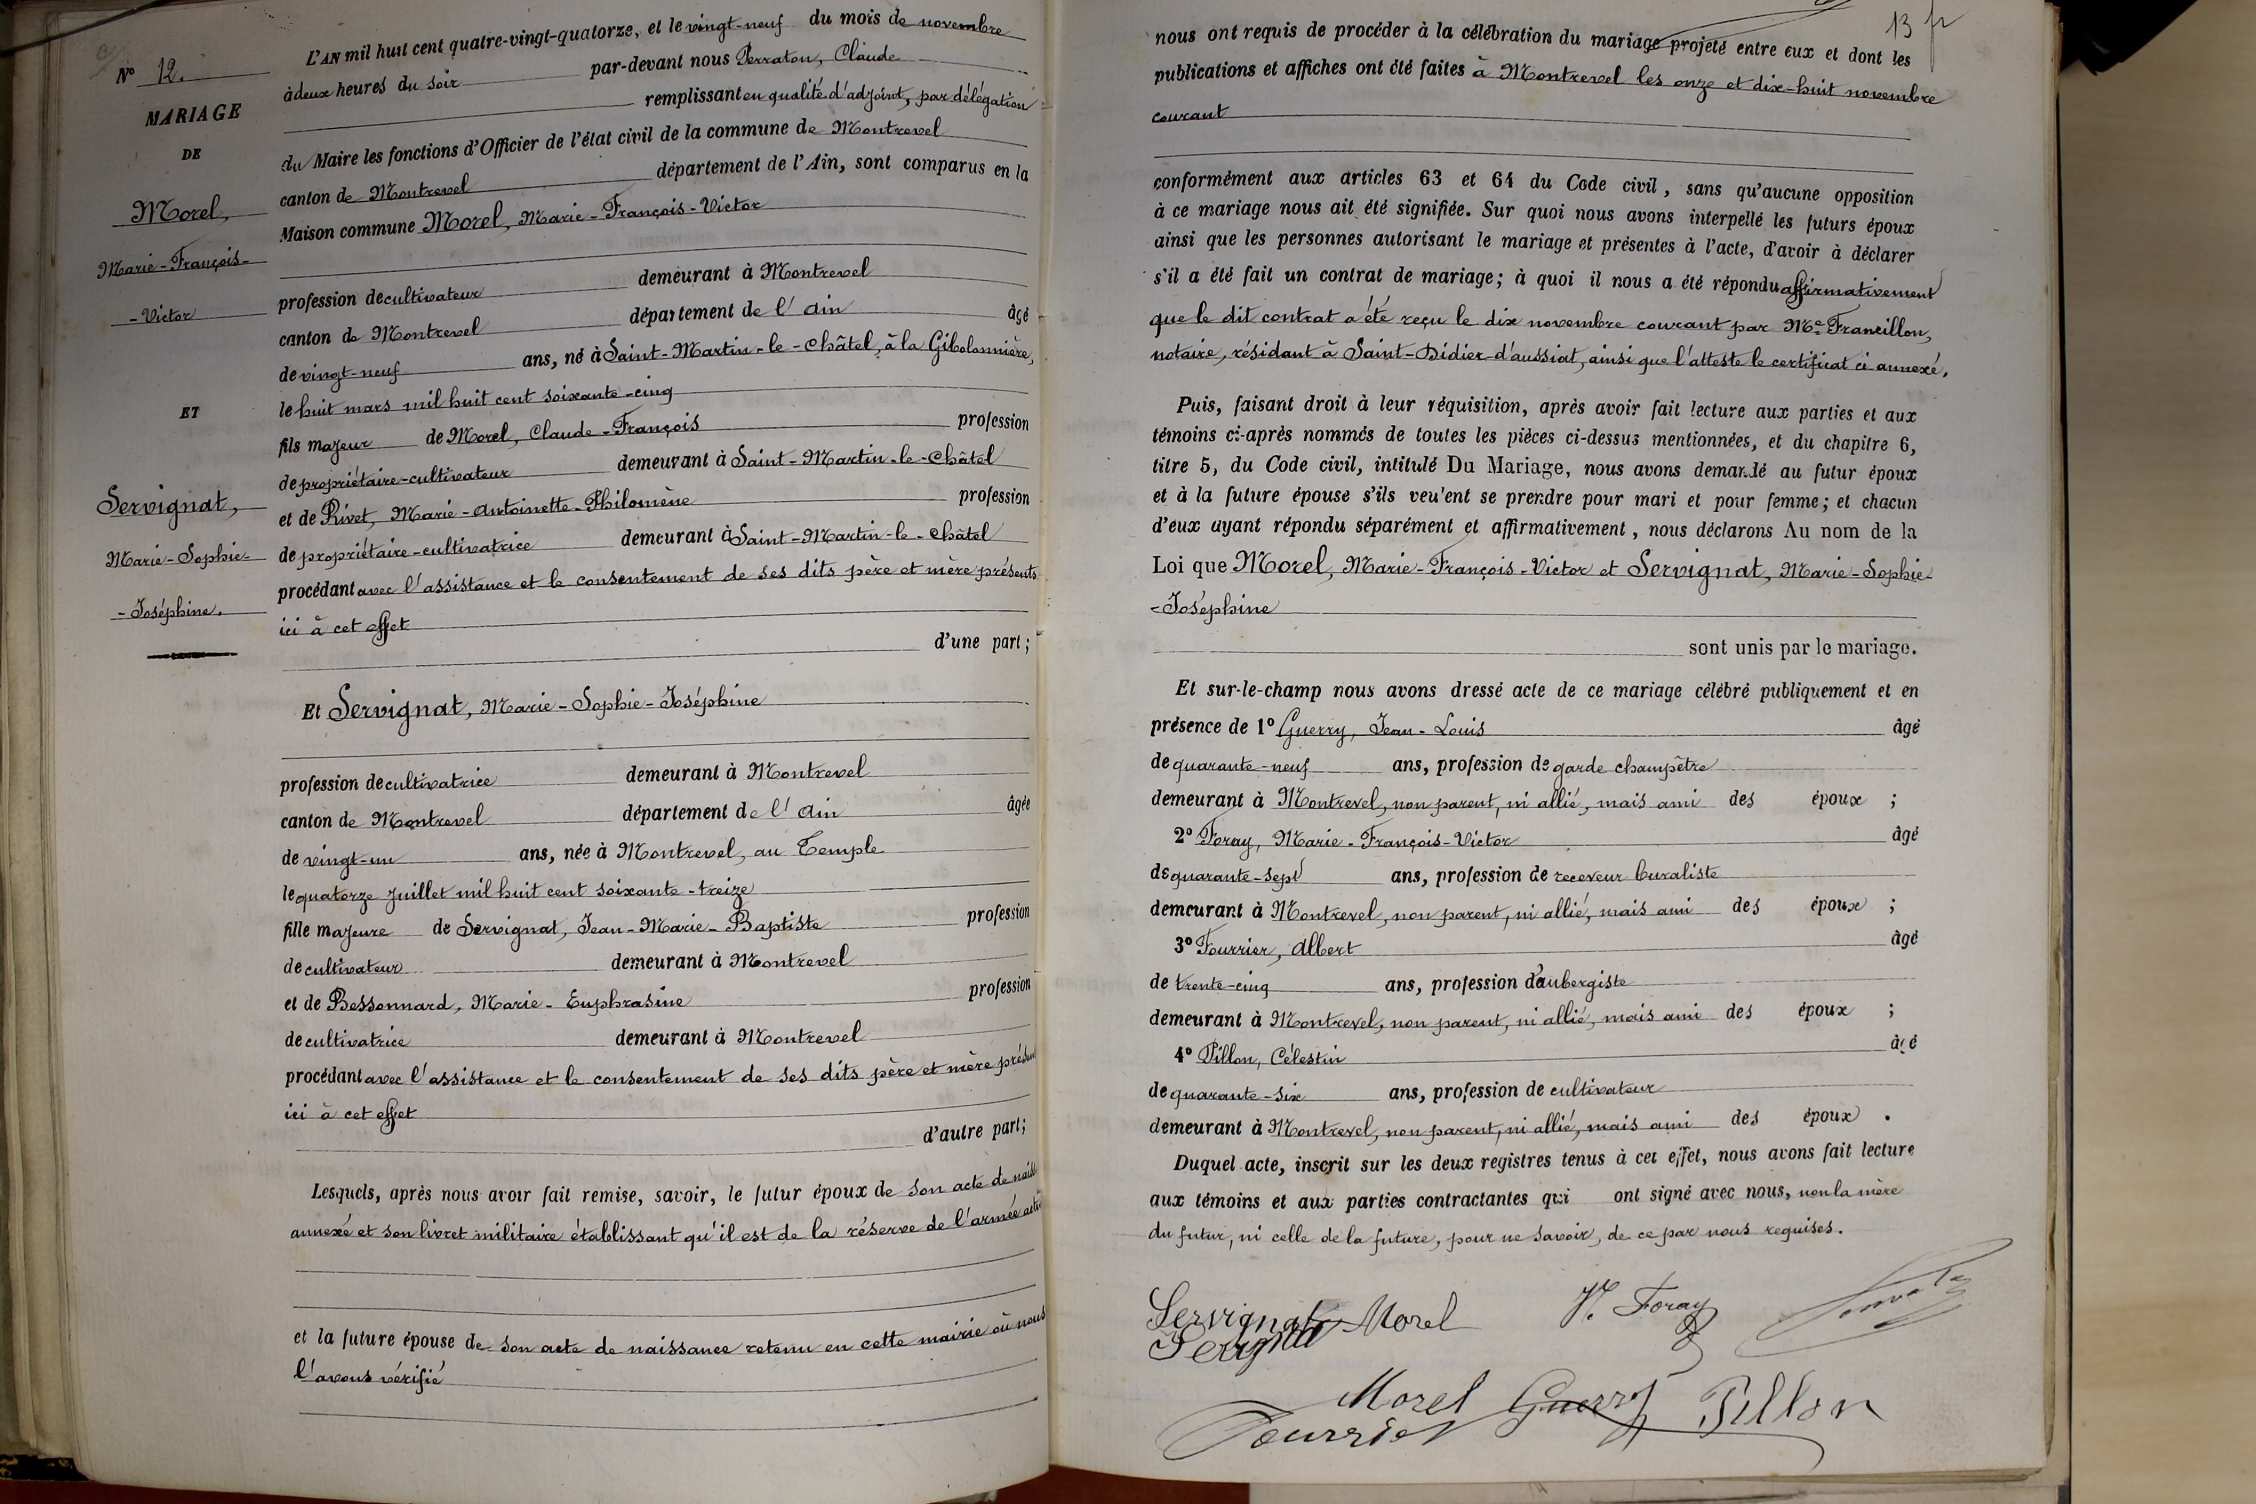 N° 12.
MARIAGE
DE
Morel,
Marie-François-
-Victor
ET
Servignat,
Marie-Sophie-
-Joséphine.
L'AN mil huit cent quatre-vingt-quatorze, et le vingt-neuf du mois de novembre
à deux heures du soir par-devant nous Perraton, Claude
remplissant en qualité d'adjoint, par délégation
du Maire les fonctions d'Officier de l'état civil de la commune de Montrevel
canton de Montrevel département de l'Ain, sont comparus en la
Maison commune Morel, Marie-François-Victor
profession de cultivateur demeurant à Montrevel
canton de Montrevel département de l'Ain âgé
de vingt-neuf ans, né à Saint-Martin-le-Châtel, à la Gibolonnière,
le huit mars mil huit cent soixante-cinq
fils majeur de Morel, Claude-François profession
de propriétaire-cultivateur demeurant à Saint-Martin-le-Châtel
et de Rivet, Marie-Antoinette-Philomène profession
de propriétaire-cultivatrice demeurant à Saint-Martin-le-Châtel
procédant avec l'assistance et le consentement de ses dits père et mère présents
ici à cet effet
d'une part;
Et Servignat, Marie-Sophie-Joséphine
profession de cultivatrice demeurant à Montrevel
canton de Montrevel département de l'Ain âgée
de vingt-un ans, née à Montrevel, au Temple
le quatorze juillet mil huit cent soixante-treize
fille majeure de Servignat, Jean-Marie-Baptiste profession
de cultivateur demeurant à Montrevel
et de Bessonnard, Marie-Euphrasine profession
de cultivatrice demeurant à Montrevel
procédant avec l'assistance et le consentement de ses dits père et mère présen
ici à cet effet
d'autre part;
Lesquels, après nous avoir fait remise, savoir, le futur époux de son acte de naiss
annexé et son livret militaire établissant qu'il est de la réserve de l'armée acti
et la future épouse de son acte de naissance retenu en cette mairie où nous
l'avons vérifié
13
nous ont requis de procéder à la célébration du mariage projeté entre eux et dont les
publications et affiches ont été faites à Montrevel les onze et dix-huit novembre
courant
conformément aux articles 63 et 64 du Code civil, sans qu'aucune opposition
à ce mariage nous ait été signifiée. Sur quoi nous avons interpellé les futurs époux
ainsi que les personnes autorisant le mariage et présentes à l'acte, d'avoir à déclarer
s'il a été fait un contrat de mariage; à quoi il nous a été répondu affirmativement
que le dit contrat a été reçu le dix novembre courant par Me Francillon,
notaire, résidant à Saint-Didier-d'aussiat, ainsi que l'atteste le certificat ci annexé.
Puis, faisant droit à leur réquisition, après avoir fait lecture aux parties et aux
témoins ci-après nommés de toutes les pièces ci-dessus mentionnées, et du chapitre 6,
titre 5, du Code civil, intitulé Du Mariage, nous avons demandé au futur époux
et à la future épouse s'ils veulent se prendre pour mari et pour femme; et chacun
d'eux ayant répondu séparément et affirmativement, nous déclarons Au nom de la
Loi que Morel, Marie-François-Victor et Servignat, Marie-Sophie-
-Joséphine
sont unis par le mariage.
Et sur-le-champ nous avons dressé acte de ce mariage célébré publiquement et en
présence de 1° Guerry, Jean-Louis âgé
de quarante-neuf ans, profession de garde champêtre
demeurant à Montrevel, non parent, ni allié, mais ami des époux ;
2° Foray, Marie-François-Victor âgé
de quarante-sept ans, profession de receveur buraliste
demeurant à Montrevel, non parent, ni allié, mais ami des époux ;
3° Fourrier, Albert âgé
de trente-cinq ans, profession d'aubergiste
demeurant à Montrevel, non parent, ni allié, mais ami des époux ;
4° Pillon, Célestin âgé
de quarante-six ans, profession de cultivateur
demeurant à Montrevel, non parent, ni allié, mais ami des époux .
Duquel acte, inscrit sur les deux registres tenus à cet effet, nous avons fait lecture
aux témoins et aux parties contractantes qui ont signé avec nous, non la mère
du futur, ni celle de la future, pour ne savoir, de ce par nous requises.
Servignat Morel V. Foray
Morel Guerry Pillon
Fourrier